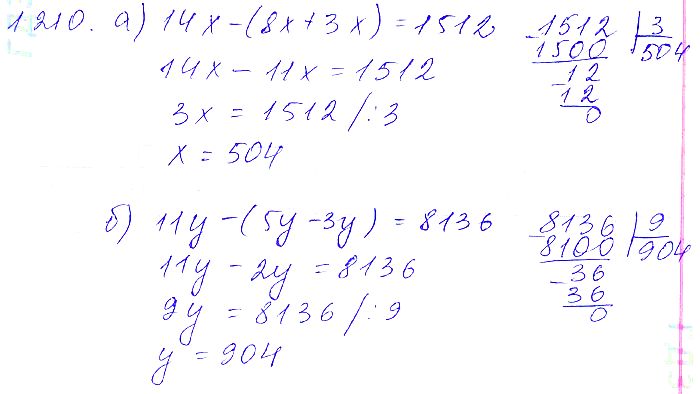 1.210. а) 14x - (8x + 3x) = 1512
14x - 11x = 1512
3x = 1512 /:3
x = 504
1512 | 3
1500 | 504
- 12
12
0
б) 11y - (5y - 3y) = 8136
11y - 2y = 8136
9y = 8136 /:9
y = 904
- 8136 | 9
8100 | 904
- 36
36
0